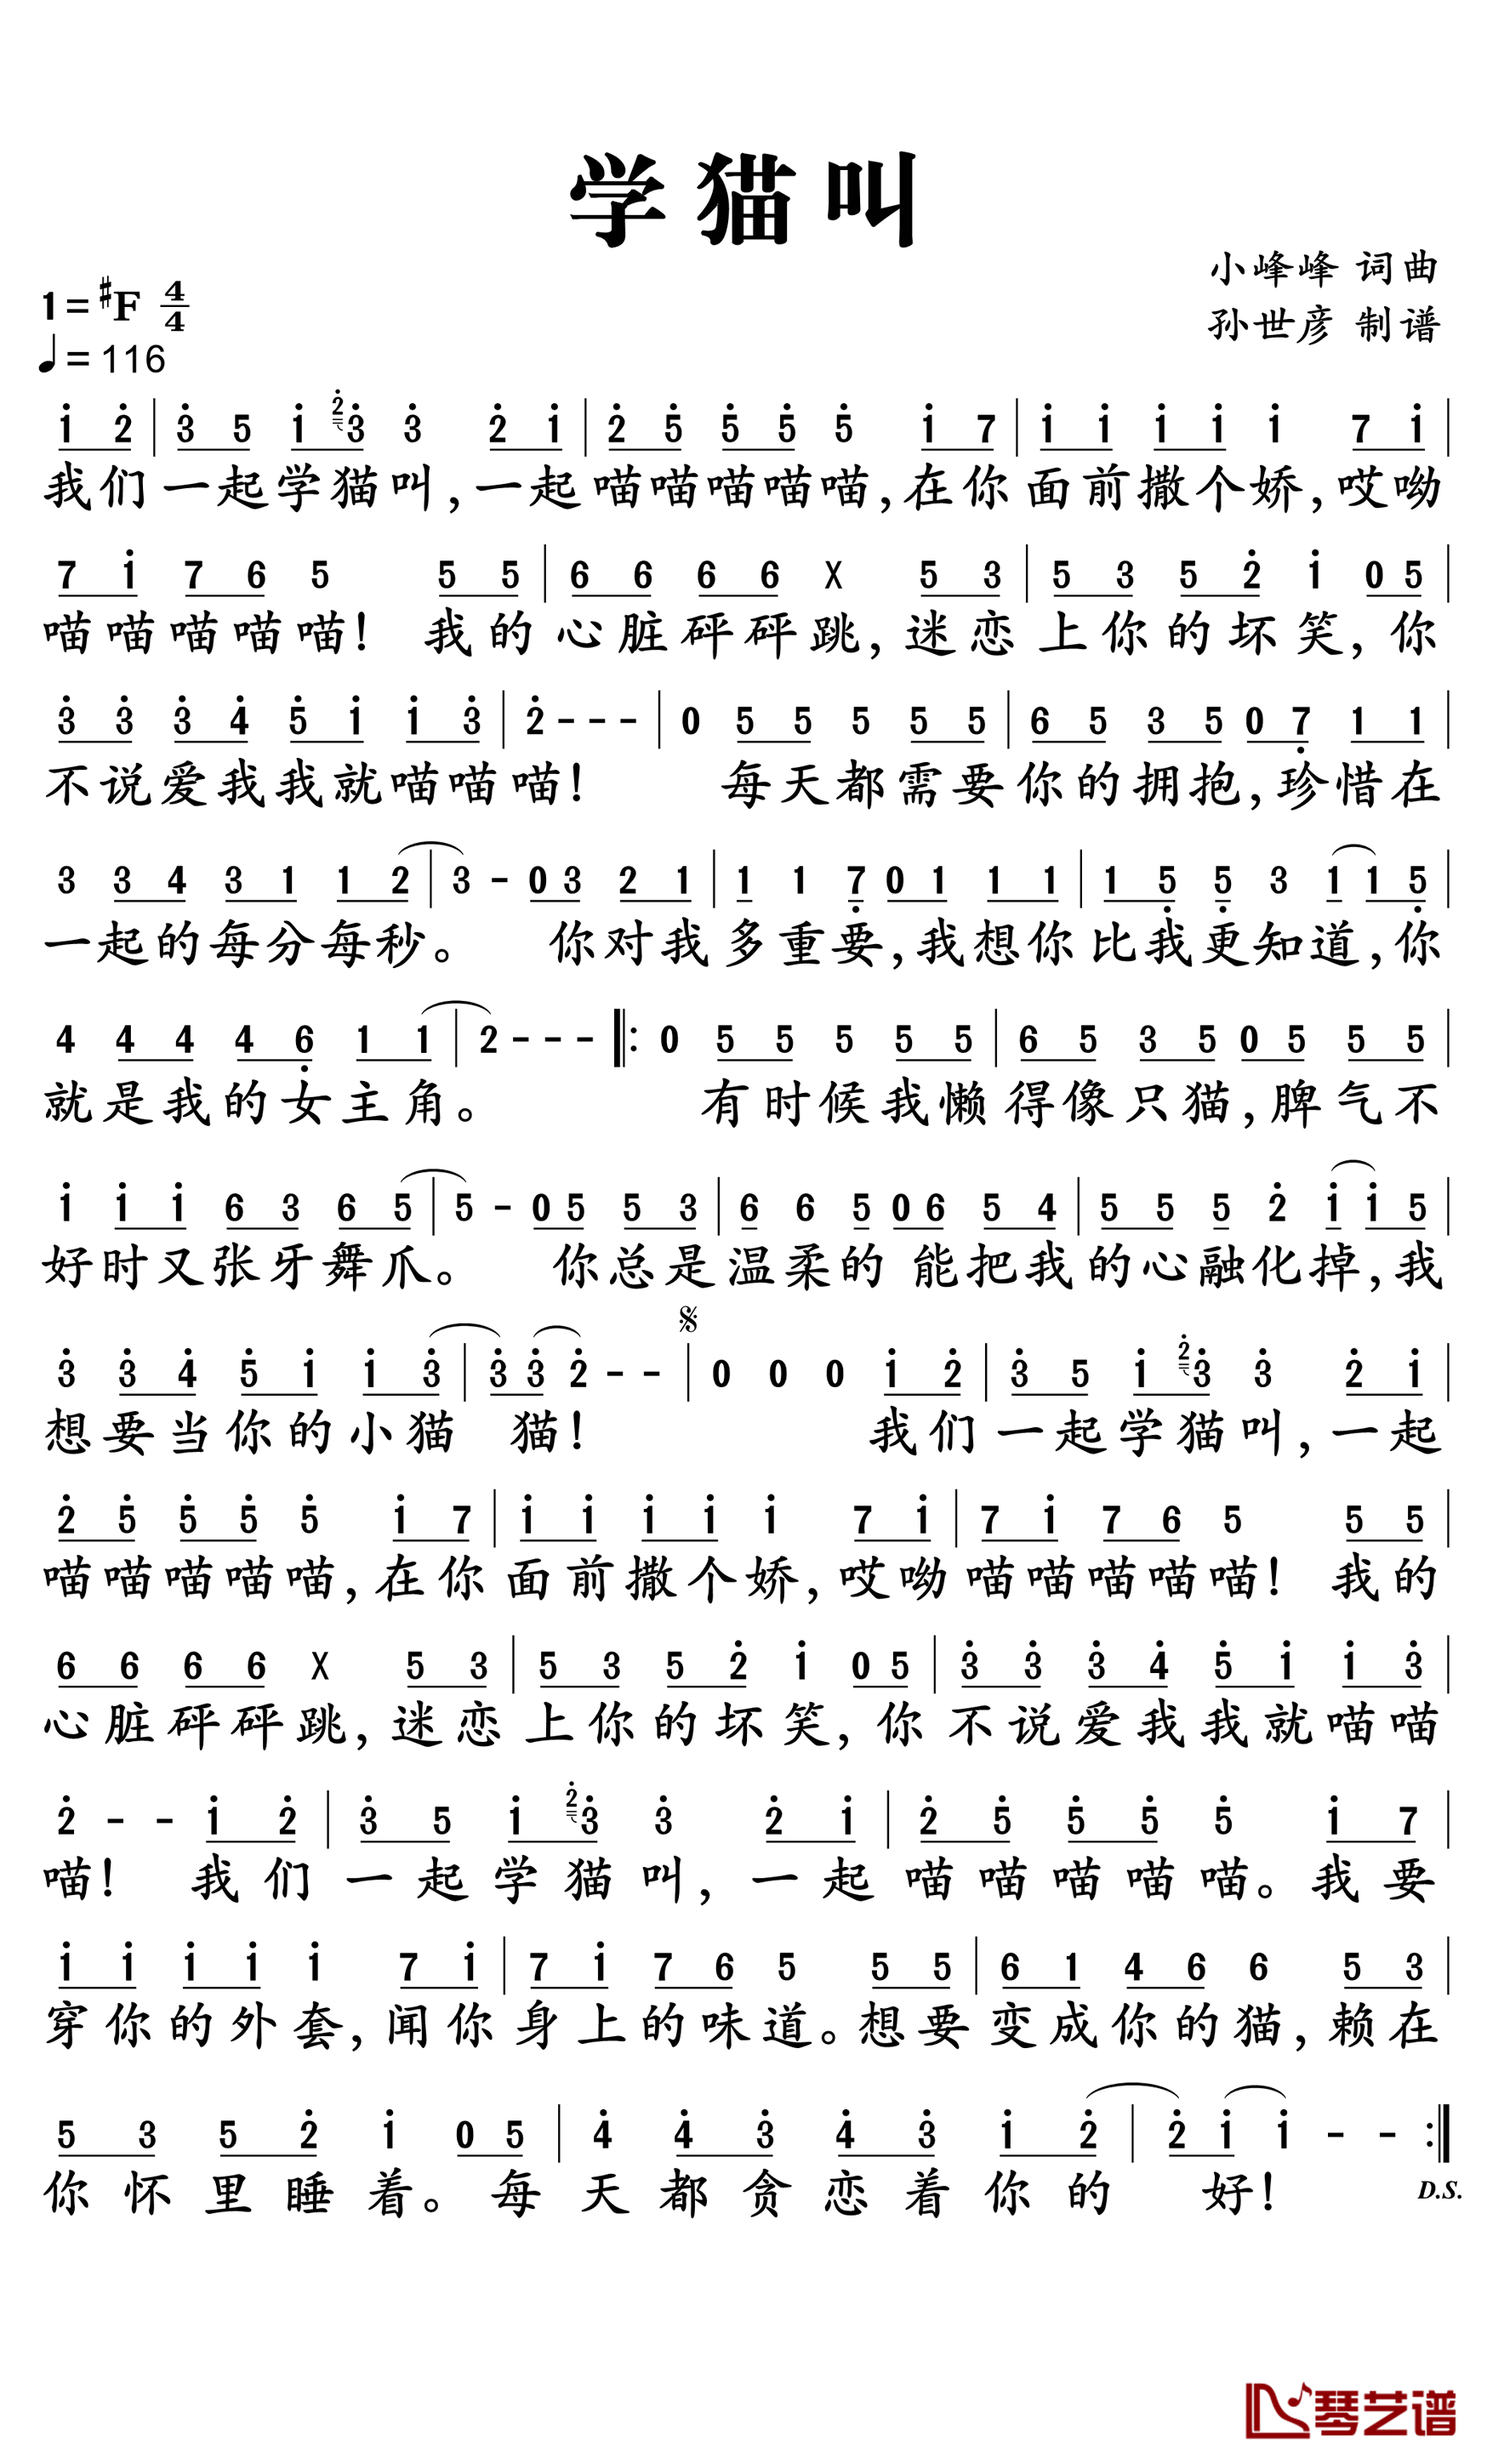 学猫叫
小峰峰 词曲
孙世彦 制谱
1=#F 4/4
♩=116
i 2 | 3 5 i 2 3 3 2 i | 2 5 5 5 5 i 7 | i i i i i 7 i |
我们一起学猫叫,一起喵喵喵喵喵,在你面前撒个娇,哎呦
7 i 7 6 5 5 5 | 6 6 6 6 X 5 3 | 5 3 5 2 i 0 5 |
喵喵喵喵喵!我的心脏砰砰跳,迷恋上你的坏笑,你
3 3 3 4 5 i i 3 | 2 - - - | 0 5 5 5 5 5 | 6 5 3 5 0 7 1 1 |
不说爱我我就喵喵喵!每天都需要你的拥抱,珍惜在
3 3 4 3 1 1 2 | 3 - 0 3 2 1 | 1 1 7 0 1 1 1 | 1 5 5 3 1 1 5 |
一起的每分每秒。你对我多重要,我想你比我更知道,你
4 4 4 4 6 1 1 | 2 - - - |: 0 5 5 5 5 5 | 6 5 3 5 0 5 5 5 |
就是我的女主角。有时候我懒得像只猫,脾气不
i i i 6 3 6 5 | 5 - 0 5 5 3 | 6 6 5 0 6 5 4 | 5 5 5 2 i i 5 |
好时又张牙舞爪。你总是温柔的 能把我的心融化掉,我
3 3 4 5 i i 3 | 3 3 2 - - | 0 0 0 i 2 | 3 5 i 2 3 3 2 i |
想要当你的小猫 猫!我们一起学猫叫,一起
2 5 5 5 5 i 7 | i i i i i 7 i | 7 i 7 6 5 5 5 |
喵喵喵喵喵,在你面前撒个娇,哎呦喵喵喵喵喵!我的
6 6 6 6 X 5 3 | 5 3 5 2 i 0 5 | 3 3 3 4 5 i i 3 |
心脏砰砰跳,迷恋上你的坏笑,你不说爱我我就喵喵
2 - - i 2 | 3 5 i 2 3 3 2 i | 2 5 5 5 5 i 7 |
喵!我们一起学猫叫,一起喵喵喵喵喵。我要
i i i i i 7 i | 7 i 7 6 5 5 5 | 6 1 4 6 6 5 3 |
穿你的外套,闻你身上的味道。想要变成你的猫,赖在
5 3 5 2 i 0 5 | 4 4 3 4 3 i 2 | 2 i i - - :|
你怀里睡着。每天都贪恋着你的 好!
D.S.
琴艺谱